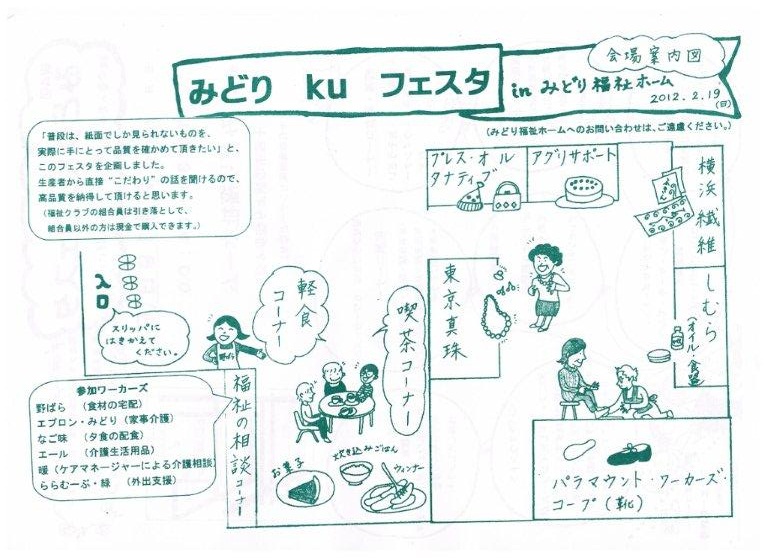 会場案内図
みどり ku フェスタ in みどり福祉ホーム
2012.2.19(日)
(みどり福祉ホームへのお問い合わせは、ご遠慮ください。)
「普段は、紙面でしか見られないものを、
実際に手にとって品質を確かめて頂きたい」と、
このフェスタを企画しました。
生産者から直接“こだわり”の話を聞けるので、
高品質を納得して頂けると思います。
(福祉クラブの組合員は引き落として、
組合員以外の方は現金で購入できます。)
プレス・オル
タナティブ
アグリサポート
横浜繊維
しむら
(オイル・食塩)
東京真珠
入口
スリッパに
はきかえて
ください。
軽食
コーナー
喫茶コーナー
野ばら
参加ワーカーズ
野ばら (食材の宅配)
エプロン・みどり (家事介護)
なご味 (夕食の配食)
エール (介護生活用品)
暖 (ケアマネージャーによる介護相談)
ららむーぶ・緑 (外出支援)
福祉の相談コーナー
お菓子
炊き込みごはん
ウィンナー
パラマウント・ワーカーズ・
コープ(靴)